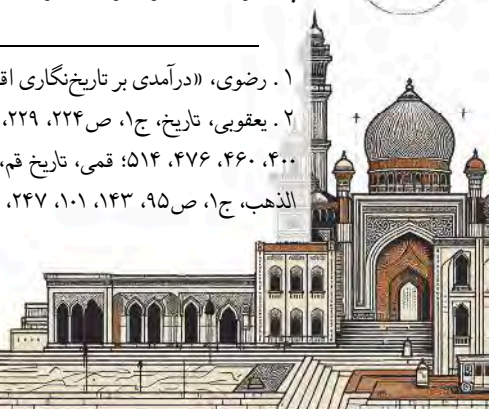 ۱. رضوی، «درآمدی بر تاریخ‌نگاری
۲. یعقوبی، تاریخ، ج۱، ص۲۲۴، ۲۲۹،
۴۰۰، ۴۶۰، ۴۷۶، ۵۱۴؛ قمی، تاریخ قم،
الذهب، ج۱، ص۹۵، ۱۴۳، ۱۰۱، ۲۴۷،